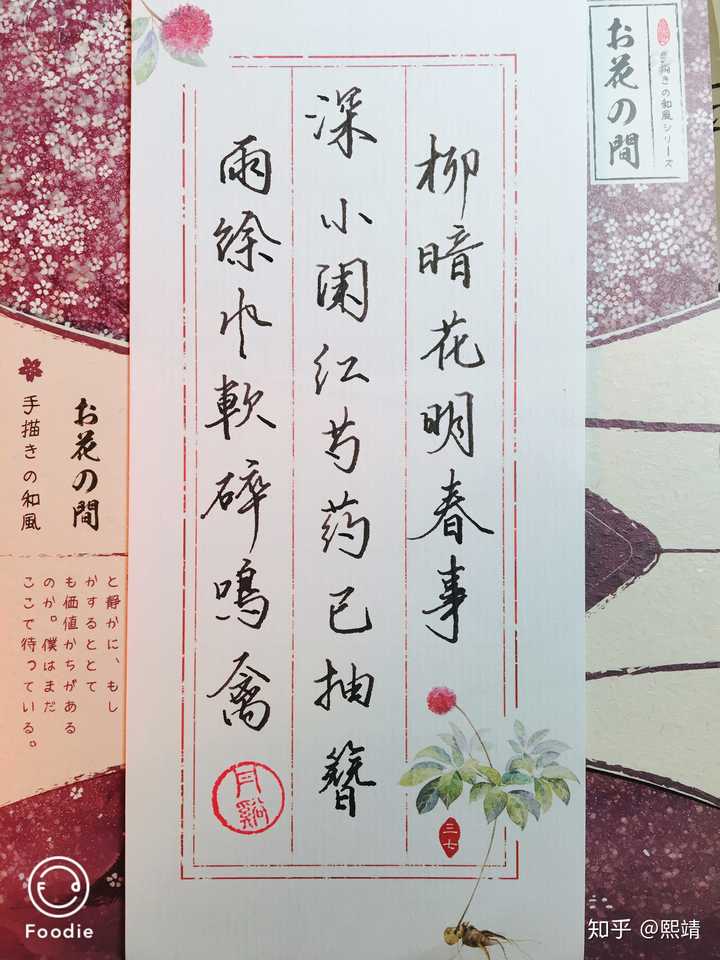 お花の間
手描きの和風シリーズ
柳暗花明春事
深小阑红芍药已抽簪
雨馀风軟碎鳴禽
月谿
三七
お花の間
手描きの和風
と静かに、もし
かするととて
も価値かちがある
のか。僕はまだ
ここで待っている。
Foodie
知乎 @熙靖